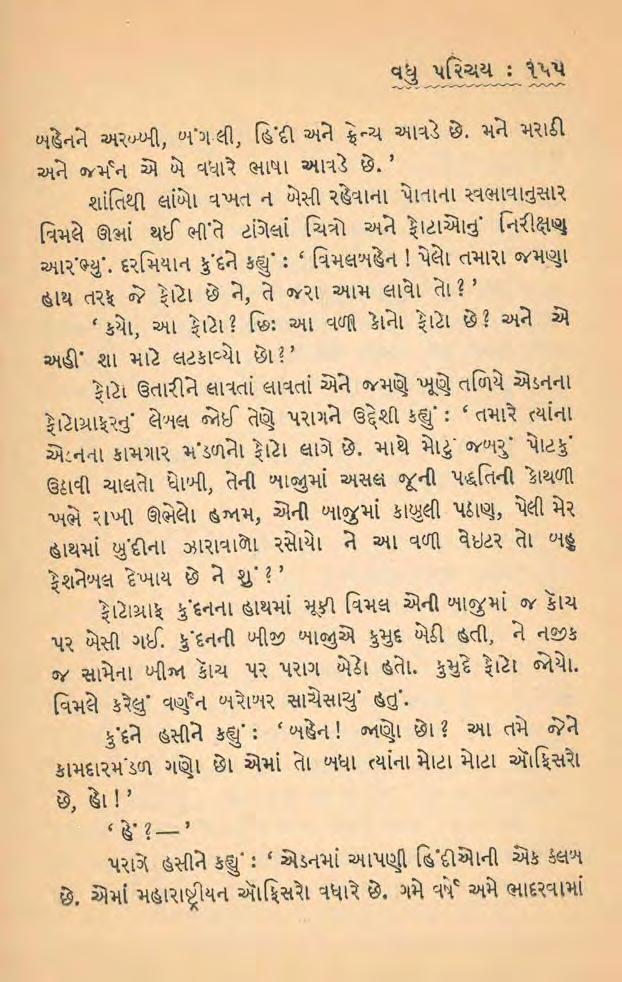 વધુ પરિચય : ૧૫૫
બહેનને અરબ્બી, બંગલી, હિંદી અને ફ્રેન્ચ આવડે છે. મને મરાઠી
અને જર્મન એ બે વધારે ભાષા આવડે છે. ’
શાંતિથી લાંબો વખત ન બેસી રહેવાના પોતાના સ્વભાવાનુસાર
વિમલે ઊભાં થઈ ભીંતે ટાંગેલાં ચિત્રો અને ફોટાઓનું નિરીક્ષણ
આરંભ્યું. દરમિયાન કુંદને કહ્યું : ‘ વિમલબહેન ! પેલો તમારા જમણા
હાથ તરફ જે ફોટો છે ને, તે જરા આમ લાવો તો ? ’
‘ કયો, આ ફોટો ? છિઃ આ વળી કોનો ફોટો છે ? અને એ
અહીં શા માટે લટકાવ્યો છો ? ’
ફોટો ઉતારીને લાવતાં લાવતાં એને જમણે ખૂણે તળિયે એડનના
ફોટોગ્રાફરનું લેબલ જોઈ તેણે પરાગને ઉદ્દેશી કહ્યું : ‘ તમારે ત્યાંના
એડનના કામગાર મંડળનો ફોટો લાગે છે. માથે મોટું જબરું પોટકું
ઉઠાવી ચાલતો ધોબી, તેની બાજુમાં અસલ જૂની પદ્ધતિની કોથળી
ખભે રાખી ઊભેલો હજામ, એની બાજુમાં કાબુલી પઠાણ, પેલી મેર
હાથમાં બુંદીના ઝારાવાળો રસોયો ને આ વળી વેઇટર તો બહુ
ફેશનેબલ દેખાય છે ને શું ? ’
ફોટોગ્રાફ કુંદનના હાથમાં મૂકી વિમલ એની બાજુમાં જ કોચ
પર બેસી ગઈ. કુંદનની બીજી બાજુએ કુમુદ બેઠી હતી, ને નજીક
જ સામેના બીજા કોચ પર પરાગ બેઠો હતો. કુમુદે ફોટો જોયો.
વિમલે કરેલું વર્ણન બરોબર સાચેસાચું હતું.
કુંદને હસીને કહ્યું : ‘ બહેન ! જાણો છો ? આ તમે જેને
કામદારમંડળ ગણો છો એમાં તો બધા ત્યાંના મોટા મોટા ઑફિસરો
છે, હો ! ’
‘ હેં ? — ’
પરાગે હસીને કહ્યું : ‘ એડનમાં આપણી હિંદીઓની એક કલબ
છે. એમાં મહારાષ્ટ્રીયન ઑફિસરો વધારે છે. ગમે વર્ષે અમે ભાદરવામાં